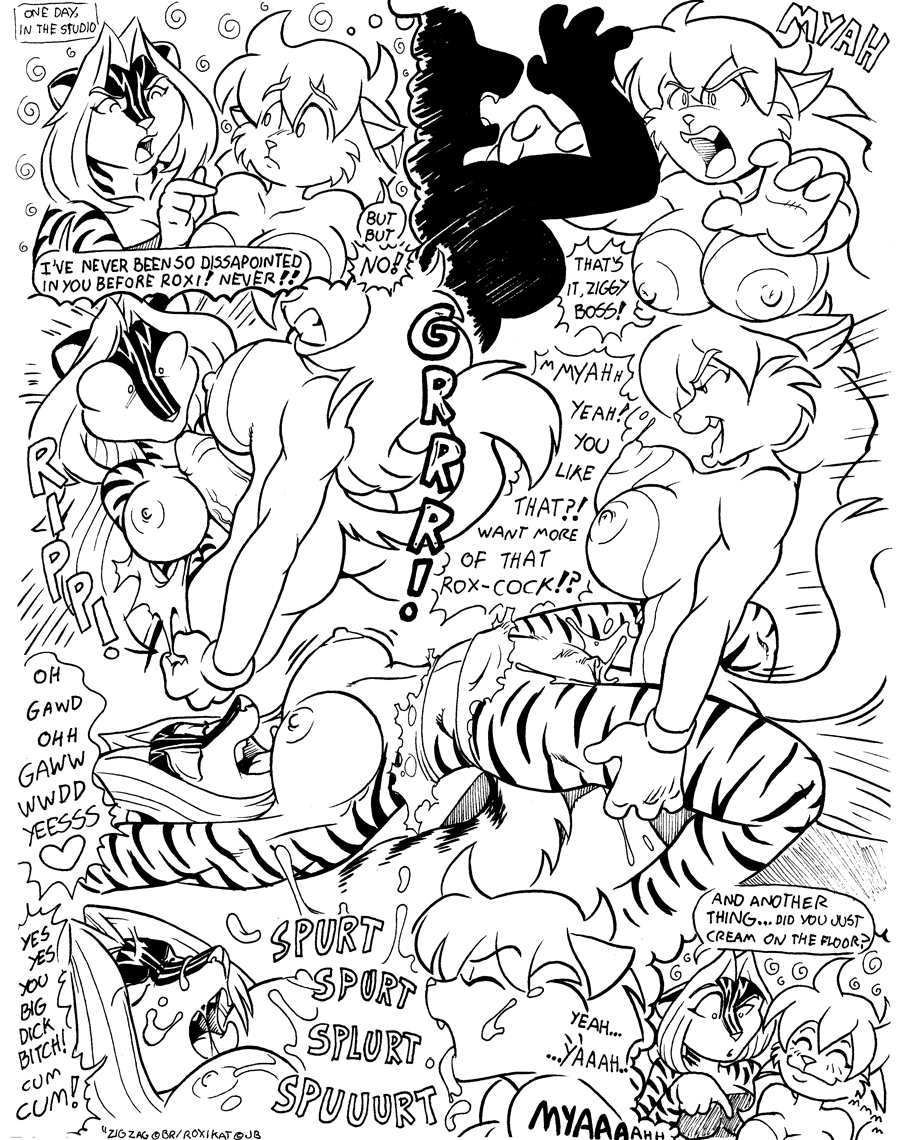 ONE DAY,
IN THE STUDIO
I'VE NEVER BEEN SO DISSAPOINTED
IN YOU BEFORE ROXI! NEVER!!
BUT
BUT..
NO!
MYAH
THAT'S
IT, ZIGGY
BOSS!
GRRRR!
RIPP!
MMYAHH
YEAH!
YOU
LIKE
THAT?!
WANT MORE
OF THAT
ROX-COCK!?
OH
GAWD
OHH
GAWW
WWDD
YEESSS
YES
YES!
YOU
BIG
DICK
BITCH!
CUM
CUM!
SPURT
SPURT
SPLURT.
SPUUURT
YEAH...
...YAAAH..
MYAAAAHH
AND ANOTHER
THING... DID YOU JUST
CREAM ON THE FLOOR?
"ZIGZAG©BR/ROXIKAT©JB